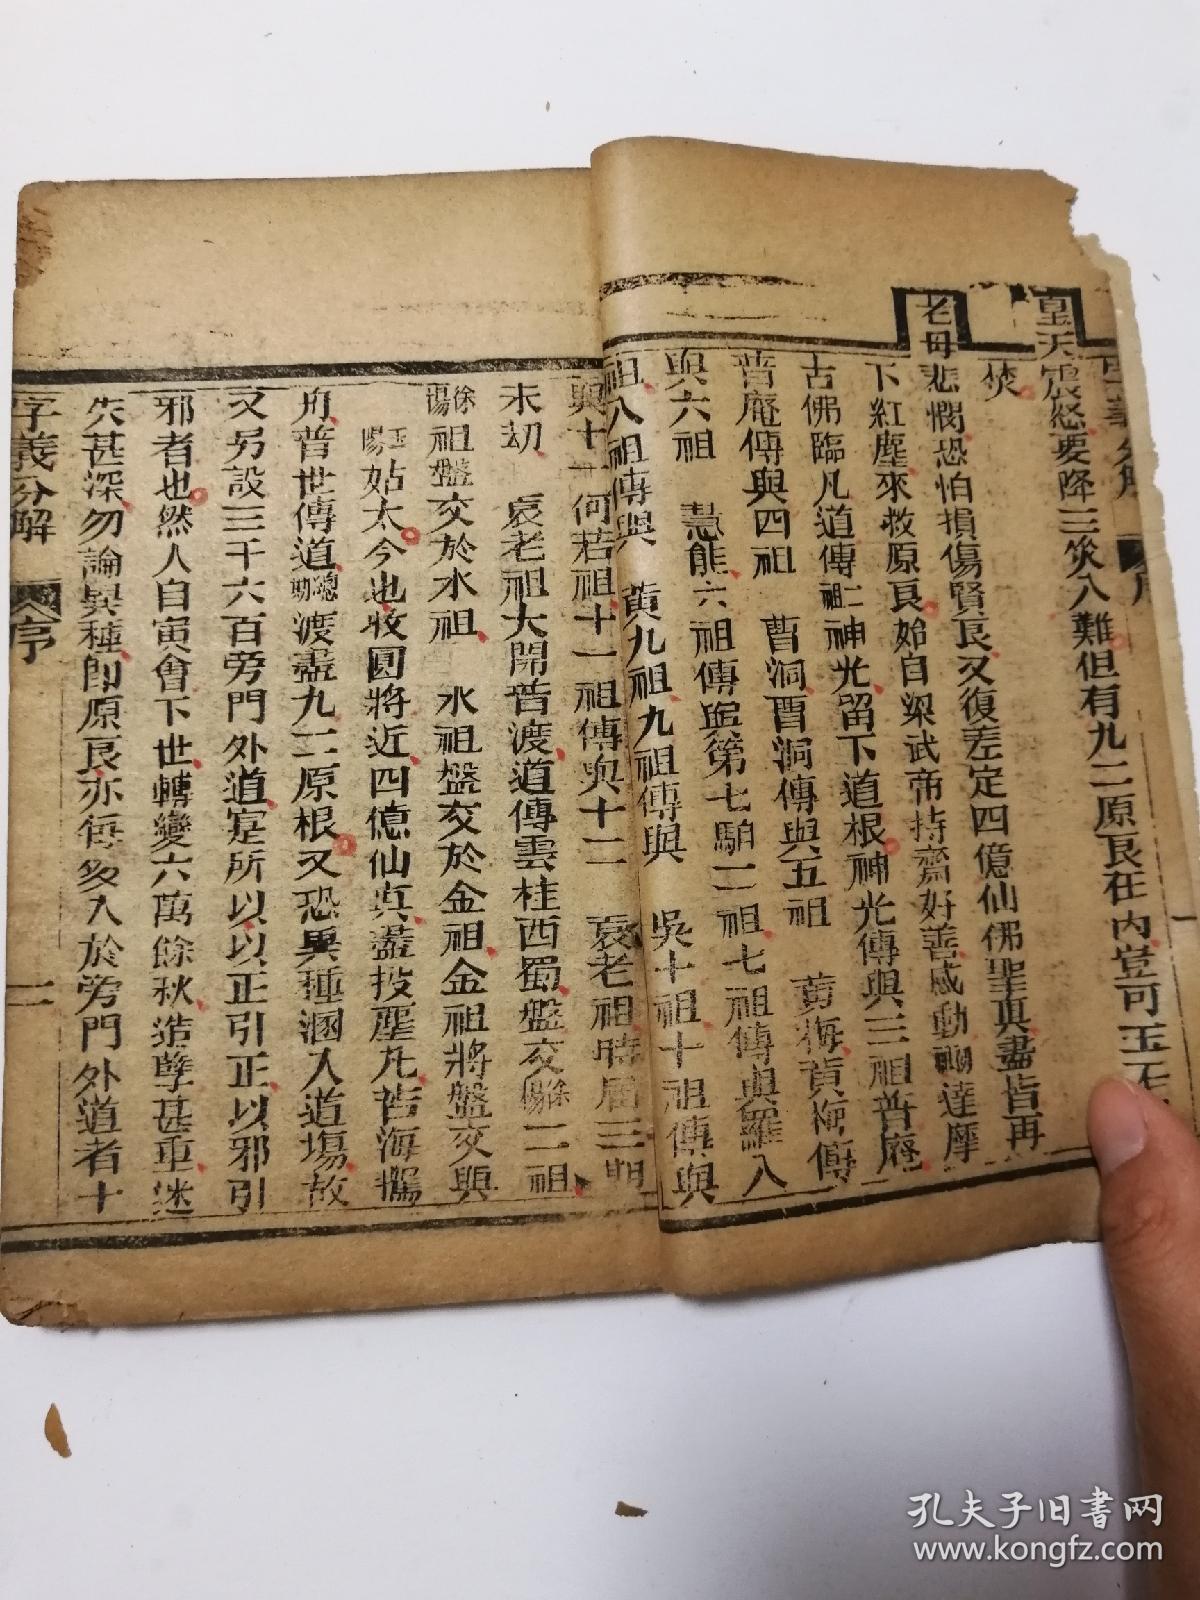 皇天震怒要降三災八難但有九二原良在內豈可玉石
焚
老母悲憫恐怕損傷賢良又復差定四億仙佛聖真盡皆再
下紅塵來救原良始自梁武帝持齋好善感動達摩
古佛臨凡道傳二祖神光留下道根神光傳與三祖普庵
普庵傳與四祖 曹洞曹洞傳與五祖 黃梅黃梅傳
與六祖 慧能六祖傳與第七馬白二祖七祖傳與羅八
祖八祖傳與 黃九祖九祖傳與 吳十祖十祖傳與
與十一何若祖十一祖傳與十二 袁老祖時屆三期
末刼 袁老祖大開普渡道傳雲桂西蜀盤交徐楊二祖
徐楊祖盤交於水祖 水祖盤交於金祖金祖將盤交與
玉陽姑太今也收圓將近四億仙真盡投聖凡苦海
舟普世傳道總動渡盡九二原根又恐異種溷入道場故
又另設三千六百旁門外道寔所以以正引正以邪引
邪者也然人自寅會下世轉變六萬餘秋造孽甚重迷
失甚深勿論異種卽原良亦每多入於旁門外道者十
字義分解 序 二
孔夫子旧书网
www.kongfz.com